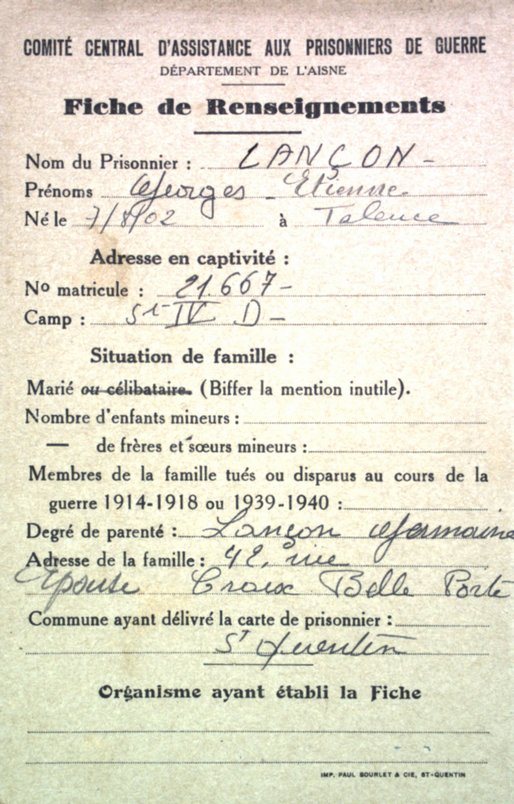 COMITÉ CENTRAL D'ASSISTANCE AUX PRISONNIERS DE GUERRE
DÉPARTEMENT DE L'AISNE
Fiche de Renseignements
Nom du Prisonnier : LANÇON -
Prénoms Georges - Etienne
Né le 7/8/02 à Talence
Adresse en captivité :
No matricule : 21.667 -
Camp : St IV D -
Situation de famille :
Marié ou célibataire. (Biffer la mention inutile).
Nombre d'enfants mineurs :
— de frères et sœurs mineurs :
Membres de la famille tués ou disparus au cours de la
guerre 1914-1918 ou 1939-1940 :
Degré de parenté : Lançon Germaine
Adresse de la famille : 42, rue
Epouse Croix Belle Porte
Commune ayant délivré la carte de prisonnier :
St Quentin
Organisme ayant établi la Fiche
IMP. PAUL BOURLET & CIE, ST-QUENTIN